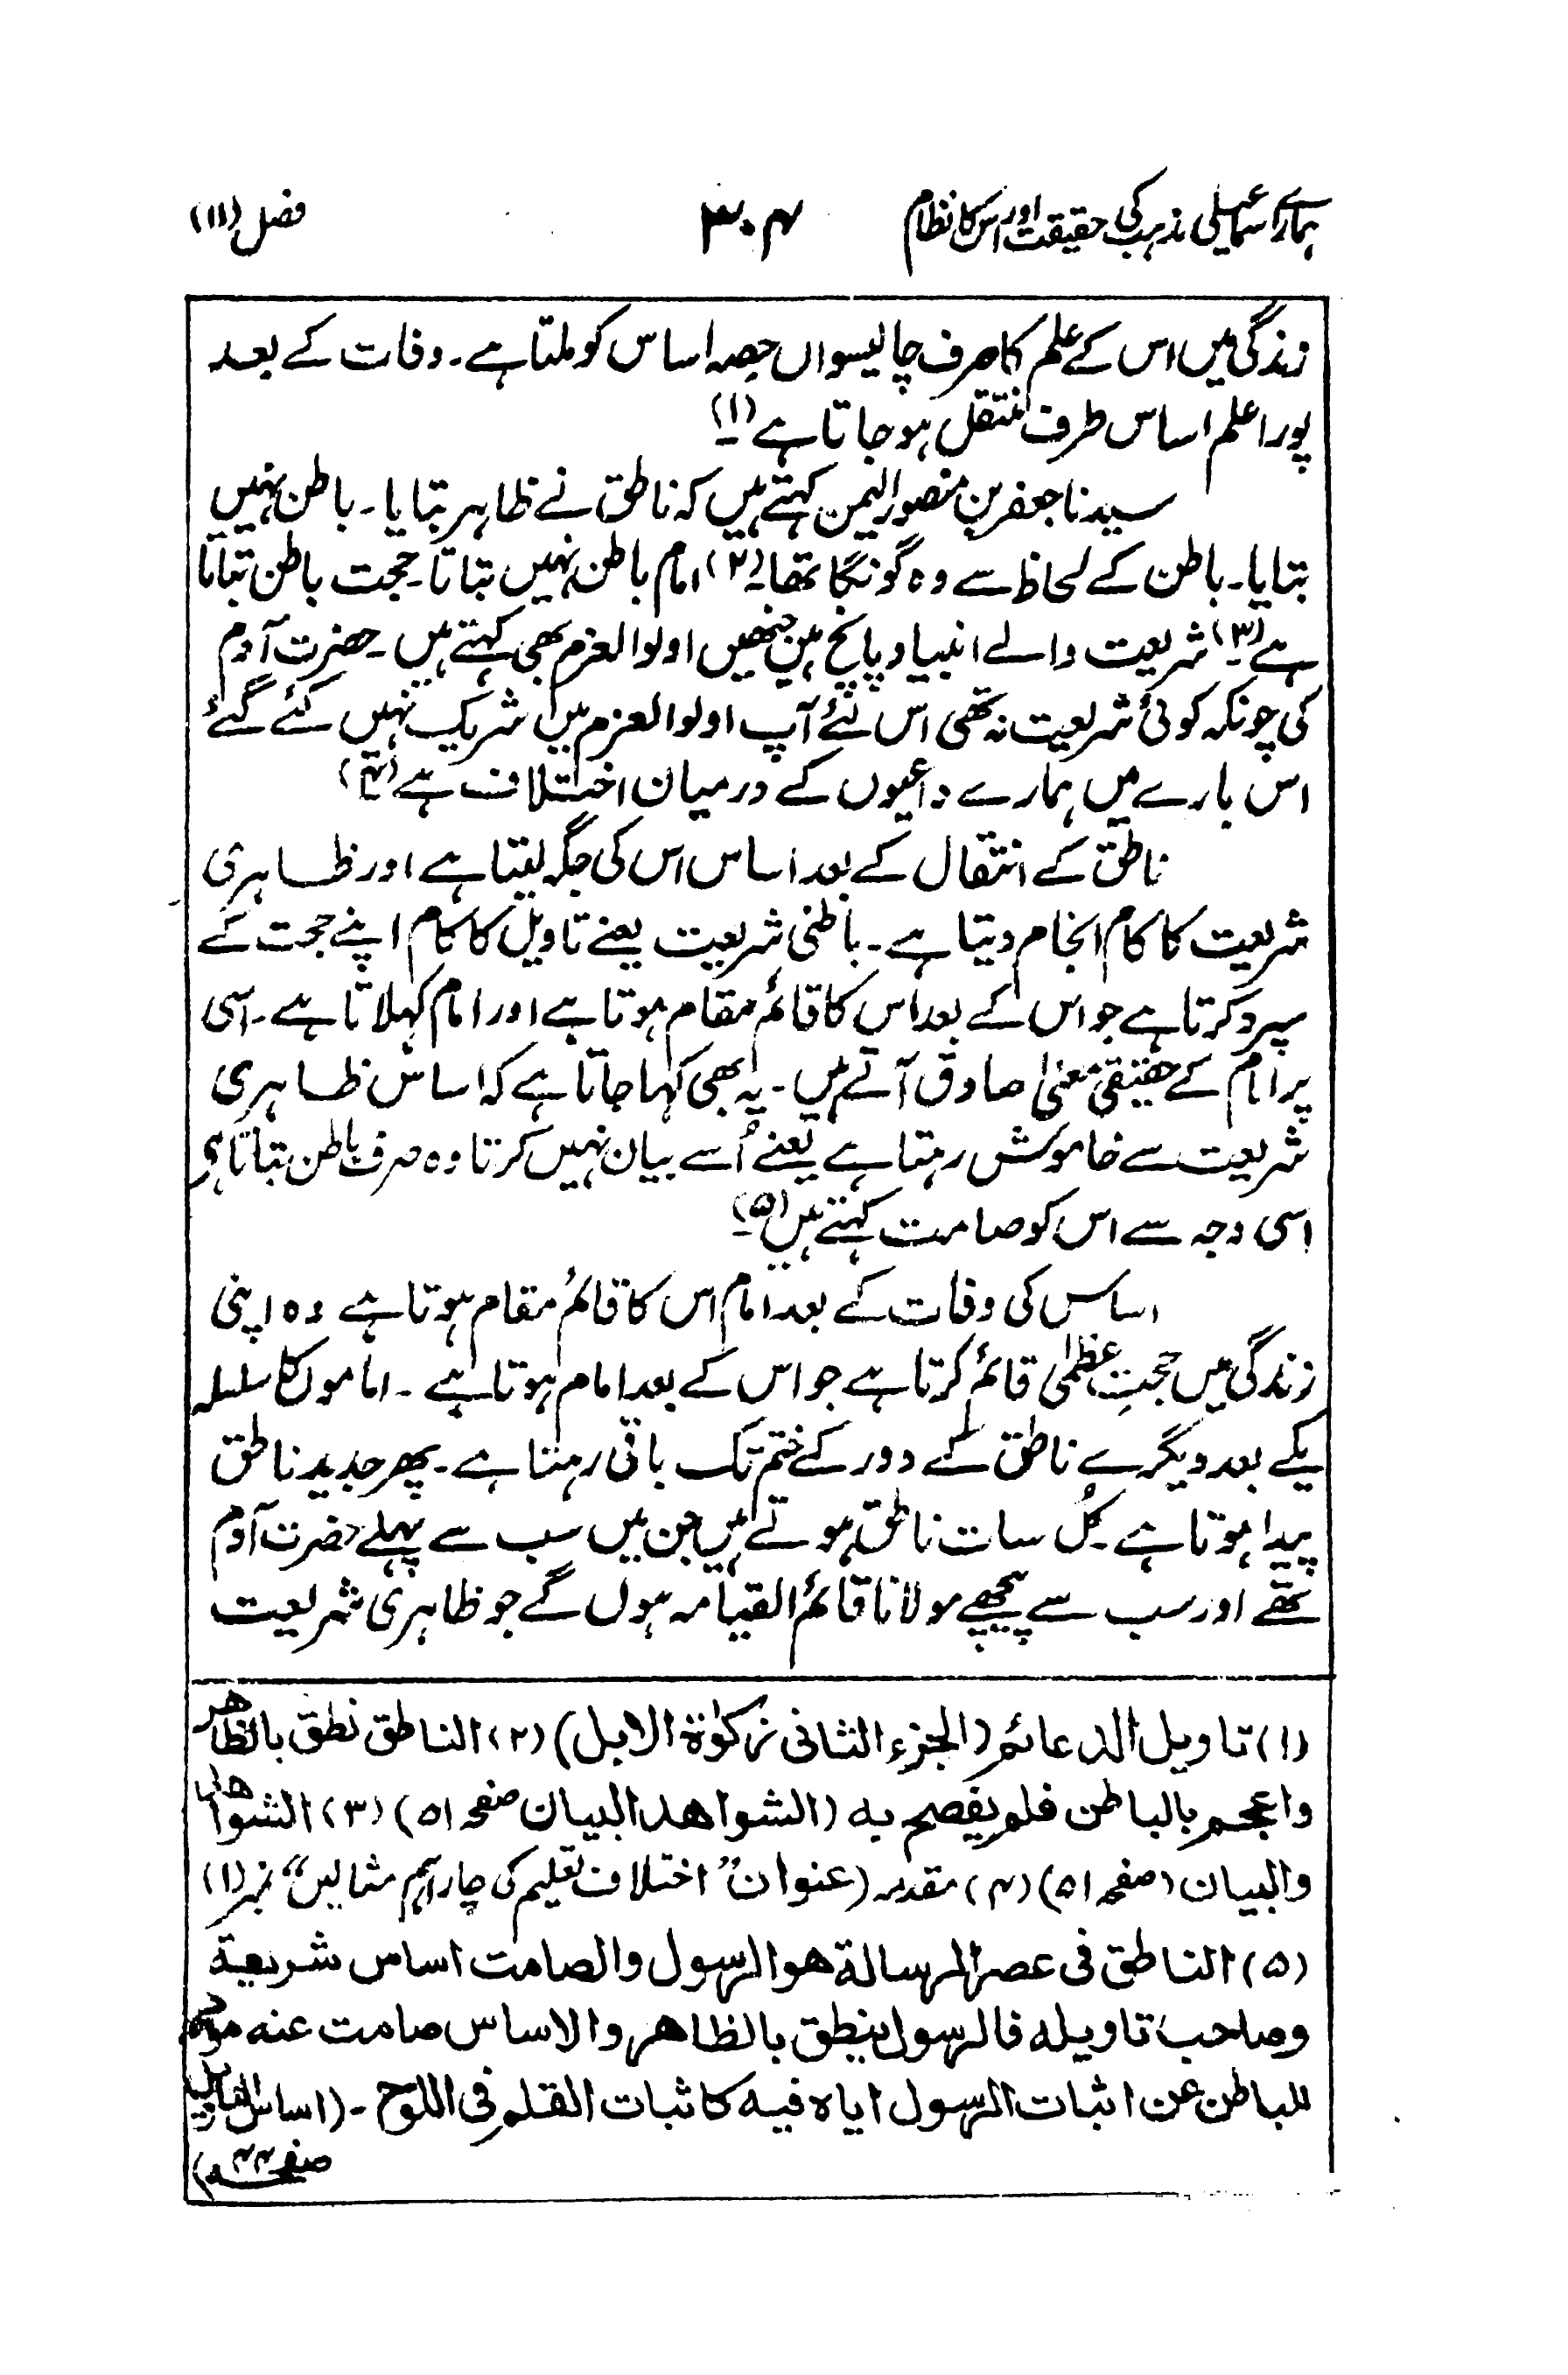 ہمارے اسماعیلی مذہب کی حقیقت اور اس کا نظام ۳۰۴ فصل (۱۱)
زندگی میں اس کے علم کا صرف چالیسواں حصہ اساس کو ملتا ہے۔ وفات کے بعد
پورا علم اساس طرف منتقل ہو جاتا ہے (۱)
سیدنا جعفر بن منصور الیمن کہتے ہیں کہ ناطق نے ظاہر بتایا۔ باطن نہیں
بتایا۔ باطن کے لحاظ سے وہ گونگا تھا۔ (۲) امام باطن نہیں بتاتا۔ حجت باطن بتاتا
ہے (۳) شریعت والے انبیاء پانچ ہیں جنھیں اولوا لعزم بھی کہتے ہیں۔ حضرت آدم
کی چونکہ کوئی شریعت نہ تھی اس لئے آپ اولوا لعزم میں شریک نہیں کئے گئے
اس بارے میں ہمارے داعیوں کے درمیان اختلاف ہے (۴)
ناطق کے انتقال کے بعد اساس اس کی جگہ لیتا ہے اور ظاہری
شریعت کا کام انجام دیتا ہے۔ باطنی شریعت یعنے تاویل کا کام اپنے حجت کے
سپرد کرتا ہے جو اس کے بعد اس کا قائم مقام ہوتا ہے اور امام کہلاتا ہے۔ اسی
پر امام کے حقیقی معنیٰ صادق آتے ہیں۔ یہ بھی کہا جاتا ہے کہ اساس ظاہری
شریعت سے خاموش رہتا ہے یعنے اُسے بیان نہیں کرتا وہ صرف باطن بتاتا ہی
اسی وجہ سے اس کو صامت کہتے ہیں (۵)
اساس کی وفات کے بعد امام اس کا قائم مقام ہوتا ہے وہ اپنی
زندگی میں حجتِ عظمیٰ قائم کرتا ہے جو اس کے بعد امام ہوتا ہے۔ اماموں کا سلسلہ
یکے بعد دیگرے ناطق کے دور کے ختم تک باقی رہتا ہے۔ پھر جدید ناطق
پیدا ہوتا ہے۔ کُل سات ناطق ہوتے ہیں جن میں سب سے پہلے حضرت آدم
تھے اور سب سے پیچھے مولانا قائم القیامہ ہوں گے جو ظاہری شریعت
(۱) تاویل الدعائم (الجزء الثانی زکوٰۃ الابل) (۲) الناطق نطق بالظاهر
واعجم بالباطن فلم یفصح به (الشواهد البیان صفحه ۵۱) (۳) الشواهد
والبیان (صفحه ۵۱) (۴) مقدمہ (عنوان "اختلاف تعلیم کی چار اہم مثالیں" نمبر (۱)
(۵) الناطق فی عصر الرسالة هو الرسول والصامت اساس شریعة
وصاحب تاویله فالرسول ینطق بالظاهر والاساس صامت عنه
للباطن عن اثبات الرسول ایاه فیه کاثبات القلم فی اللوح - (اساس التاویل
صفحہ ۴۴)